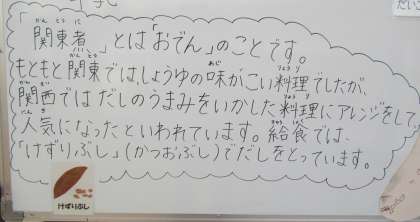 「関東煮」とは「おでん」のことです。
もともと関東では、しょうゆの味がこい料理でしたが、
関西ではだしのうまみをいかした料理にアレンジをして、
人気になったといわれています。給食では、
「けずりぶし」(かつおぶし)でだしをとっています。
けずりぶし